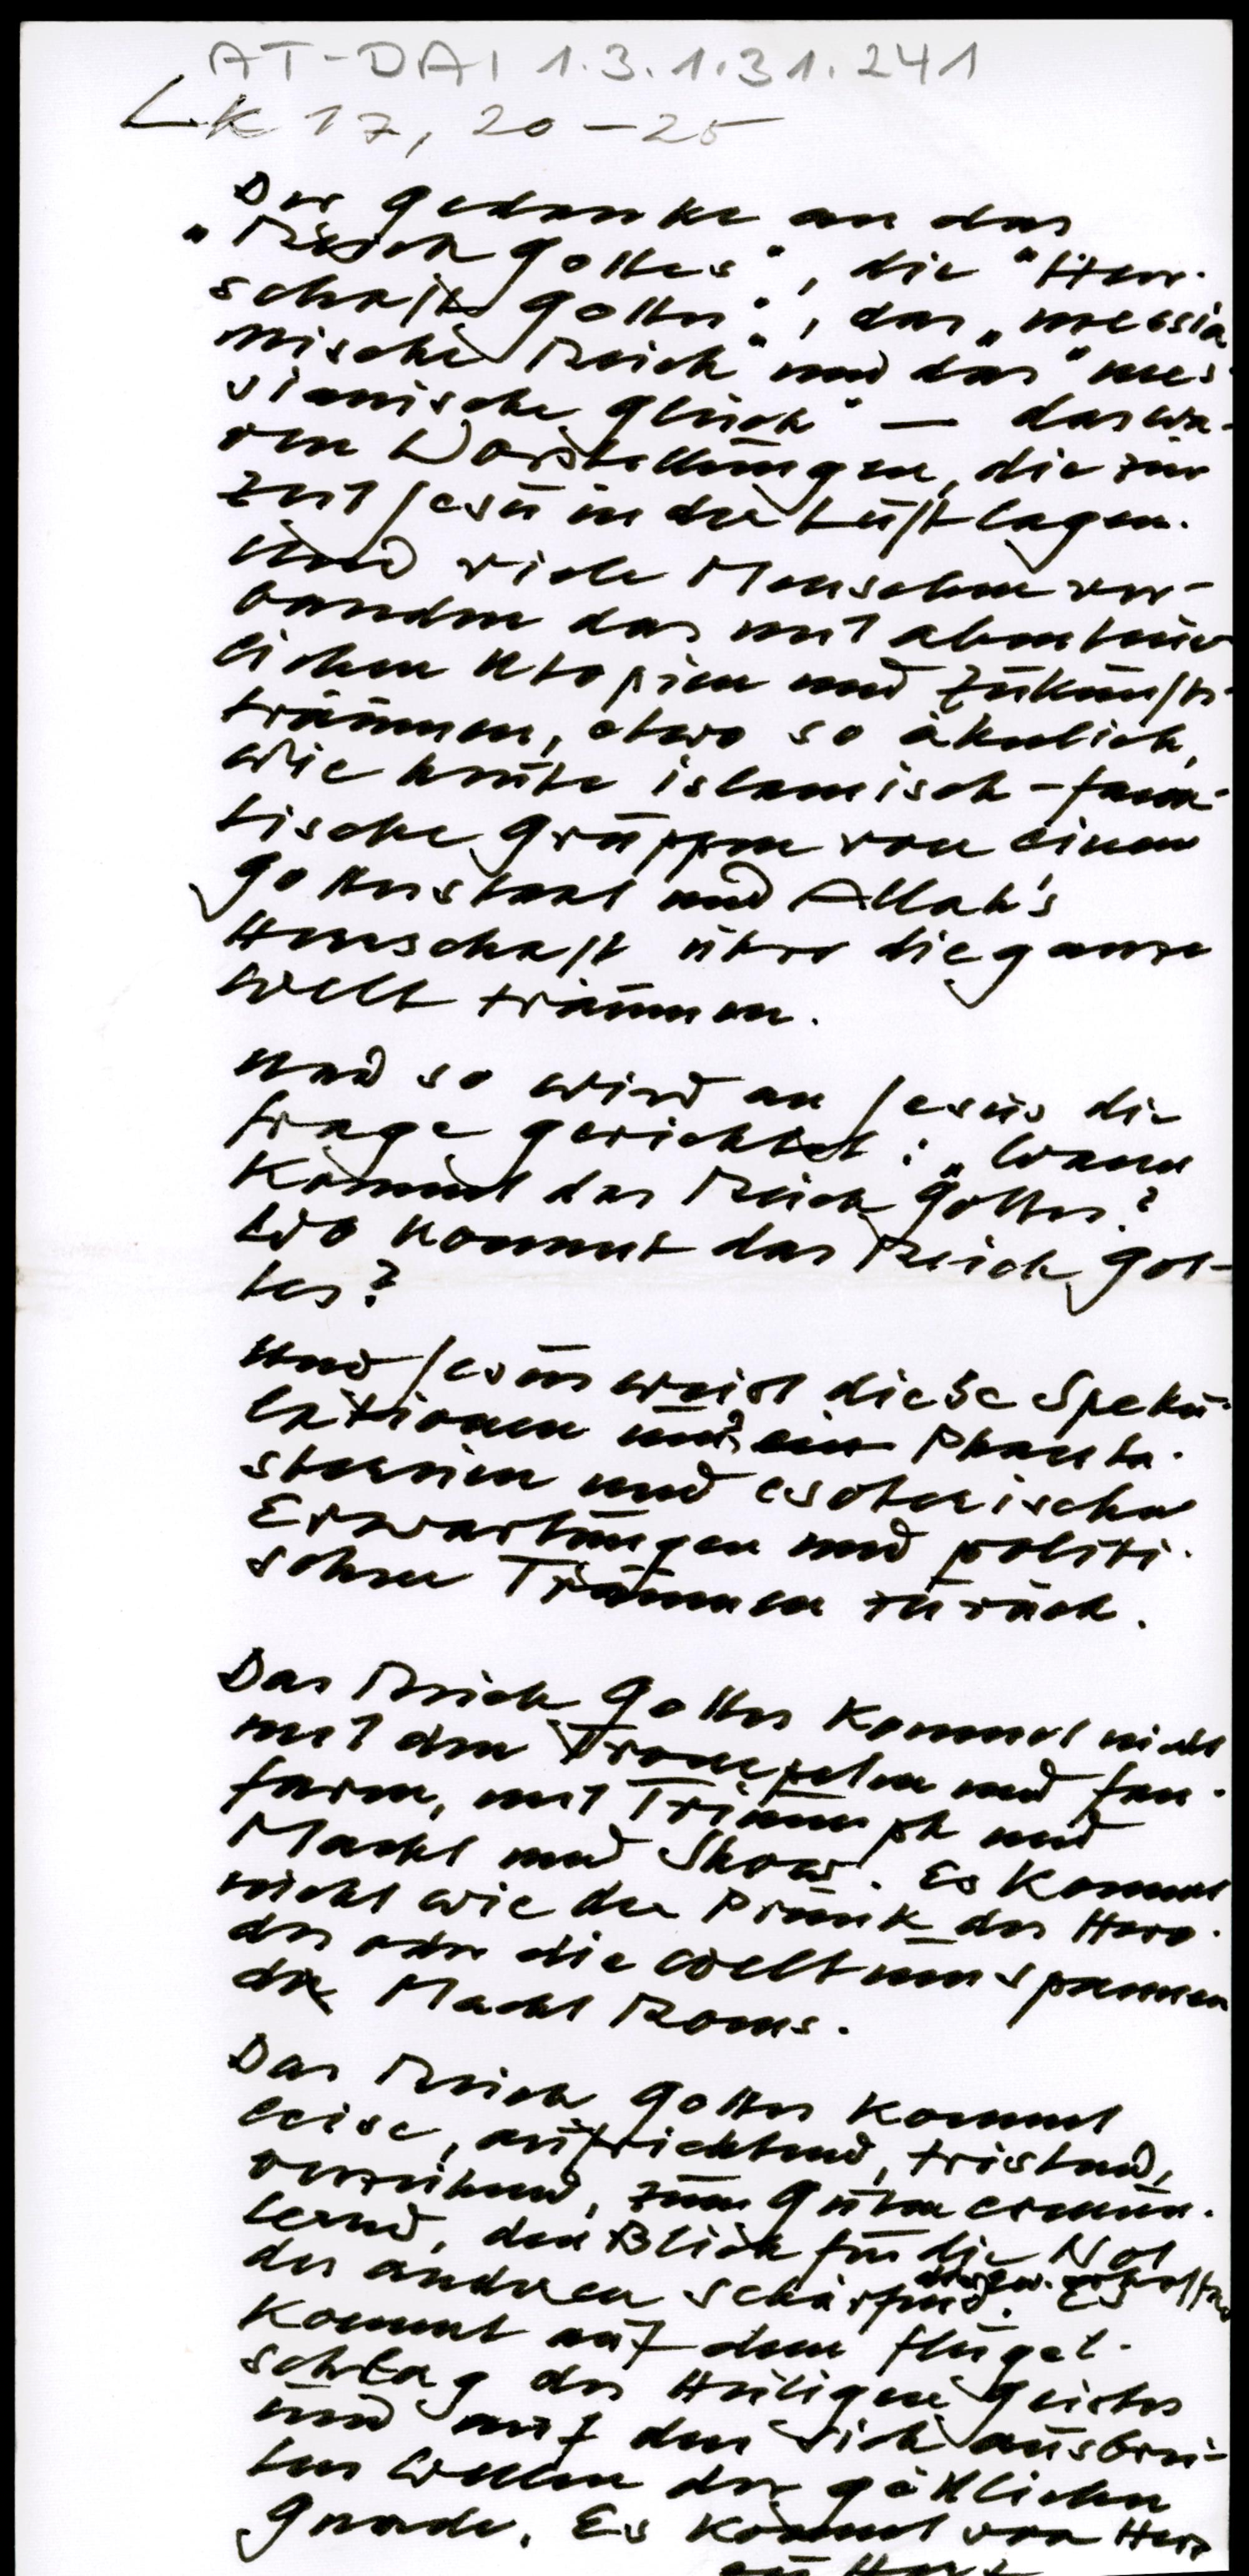 AT-DAI 1.3.1.31.241
Lk 17, 20-25
Der Gedanke an das
"Reich Gottes", die "Herr-
schaft Gottes", das "messia
nische Reich" und das "mes-
sianische Glück" — das wa-
ren Vorstellungen, die zur
Zeit Jesu in der Luft lagen.
Und viele Menschen ver-
banden das mit abenteuer
lichen Utopien und Zukunfts-
träumen, etwa so ähnlich,
wie heute islamisch-fana-
tische Gruppen von einem
Gottesstaat und Allah's
Herrschaft über die ganze
Welt träumen.
Und so wird an Jesus die
Frage gerichtet: "Wann
kommt das Reich Gottes?
Wo kommt das Reich Got-
tes?
Und Jesus weist diese Speku-
lationen und Phanta-
stereien und esoterischen
Erwartungen und politi-
schen Träumen zurück.
Das Reich Gottes kommt nicht
mit den Trompeten und Fan-
faren, mit Triumph und
Macht und Show. Es kommt
nicht wie der Prunk des Hero-
des oder die weltumspannen
de Macht Roms.
Das Reich Gottes kommt
leise, aufrichtend, tröstend,
verzeihend, zum Guten ermun-
ternd, den Blick für die Not
des anderen schärfend. Es
kommt auf dem Flügel-
schlag des Heiligen Geistes
und auf den sich ausbrei-
ten Wellen der göttlichen
Gnade. Es kommt von Herz
zu Herz